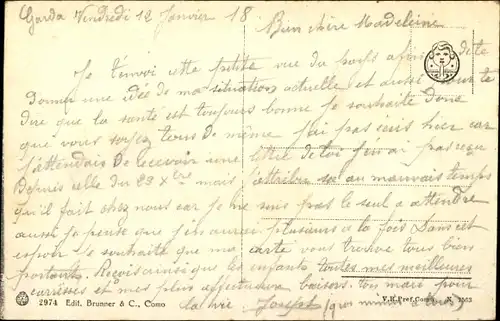 Garda Vendredi 12 Janvier 18
Bien chère Madeleine
Je t'envoi cette petite vue du pays afin de te
donner une idée de ma situation actuelle et aussi pour te
dire que la santé est toujours bonne je souhaite donc
que vous soyez tous de même. J'ai pas écris hier car
j'attendais de recevoir une lettre de toi j'en ai pas reçu
Depuis celle du 29 Xbre mais j'attribu sa au mauvais temps
qu'il fait chez nous car je ne suis pas le seul a attendre
aussi je pense que j'en aurai plusieurs a la fois Dans cet
espoir je souhaite que ma carte vous trouve tous bien
portants. Reçois ainsi que les enfants toutes mes meilleures
caresses et mes plus affectueux baisers. Ton mari pour
la vie Joseph
2974 Edit. Brunner & C., Como
V. R. Pref. Como